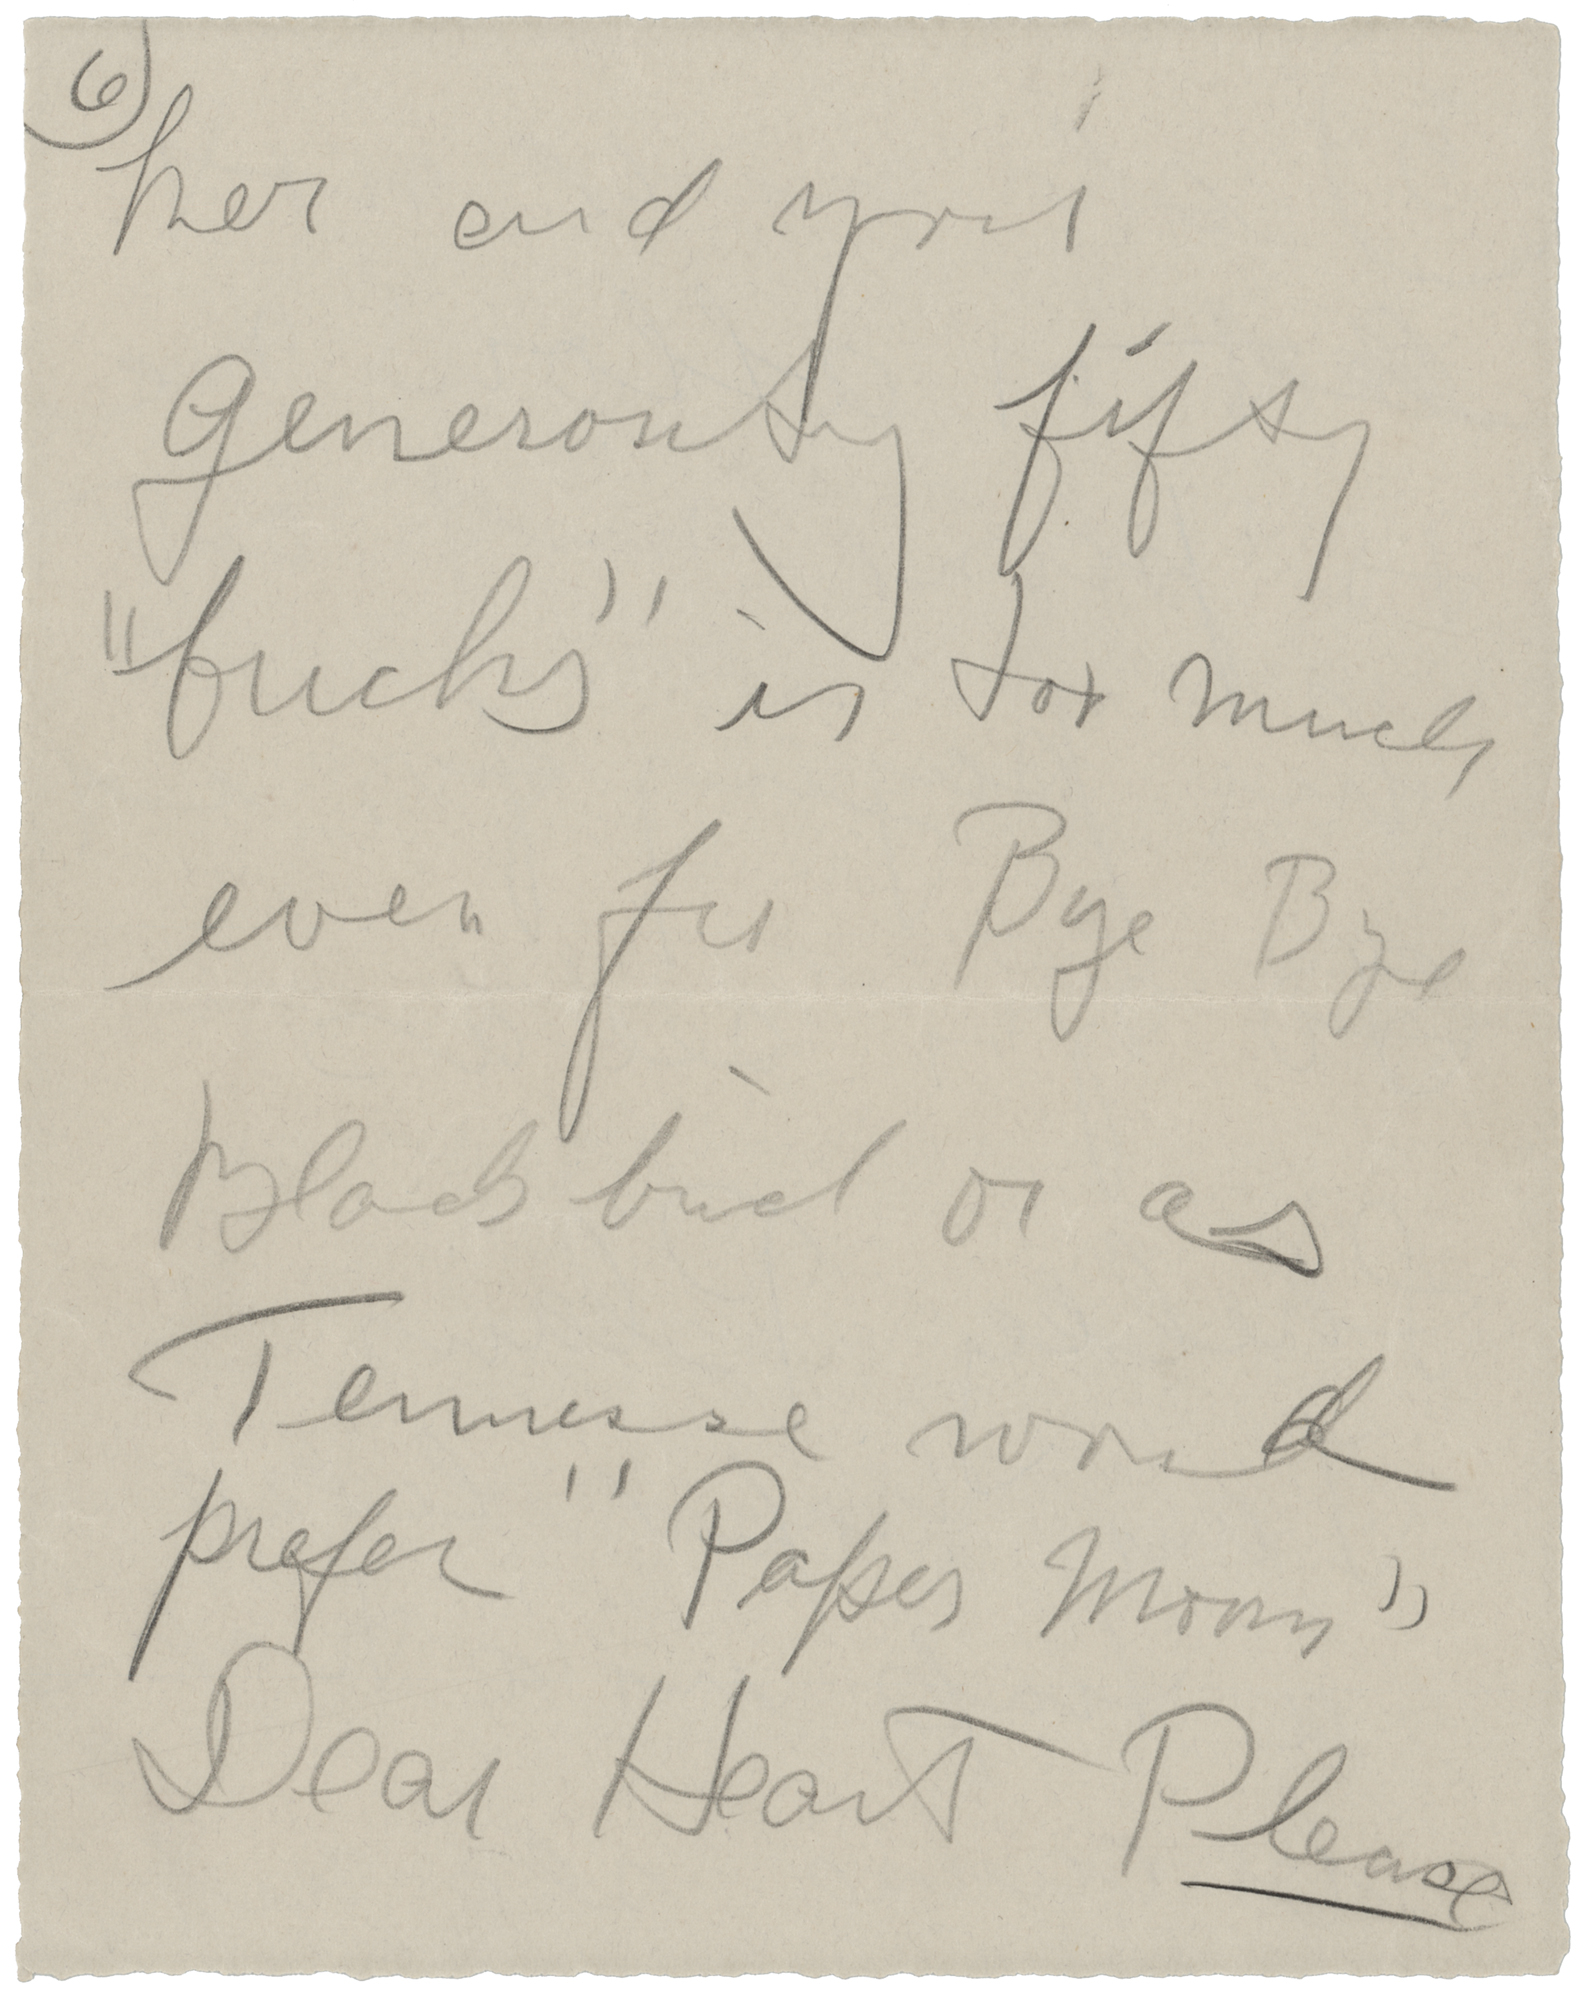 6
her and your
Generosity fifty
"bucks" is too much
even for Bye Bye
Blackbird or as
Tennesse would
prefer "Paper Moon"
Dear Heart Please